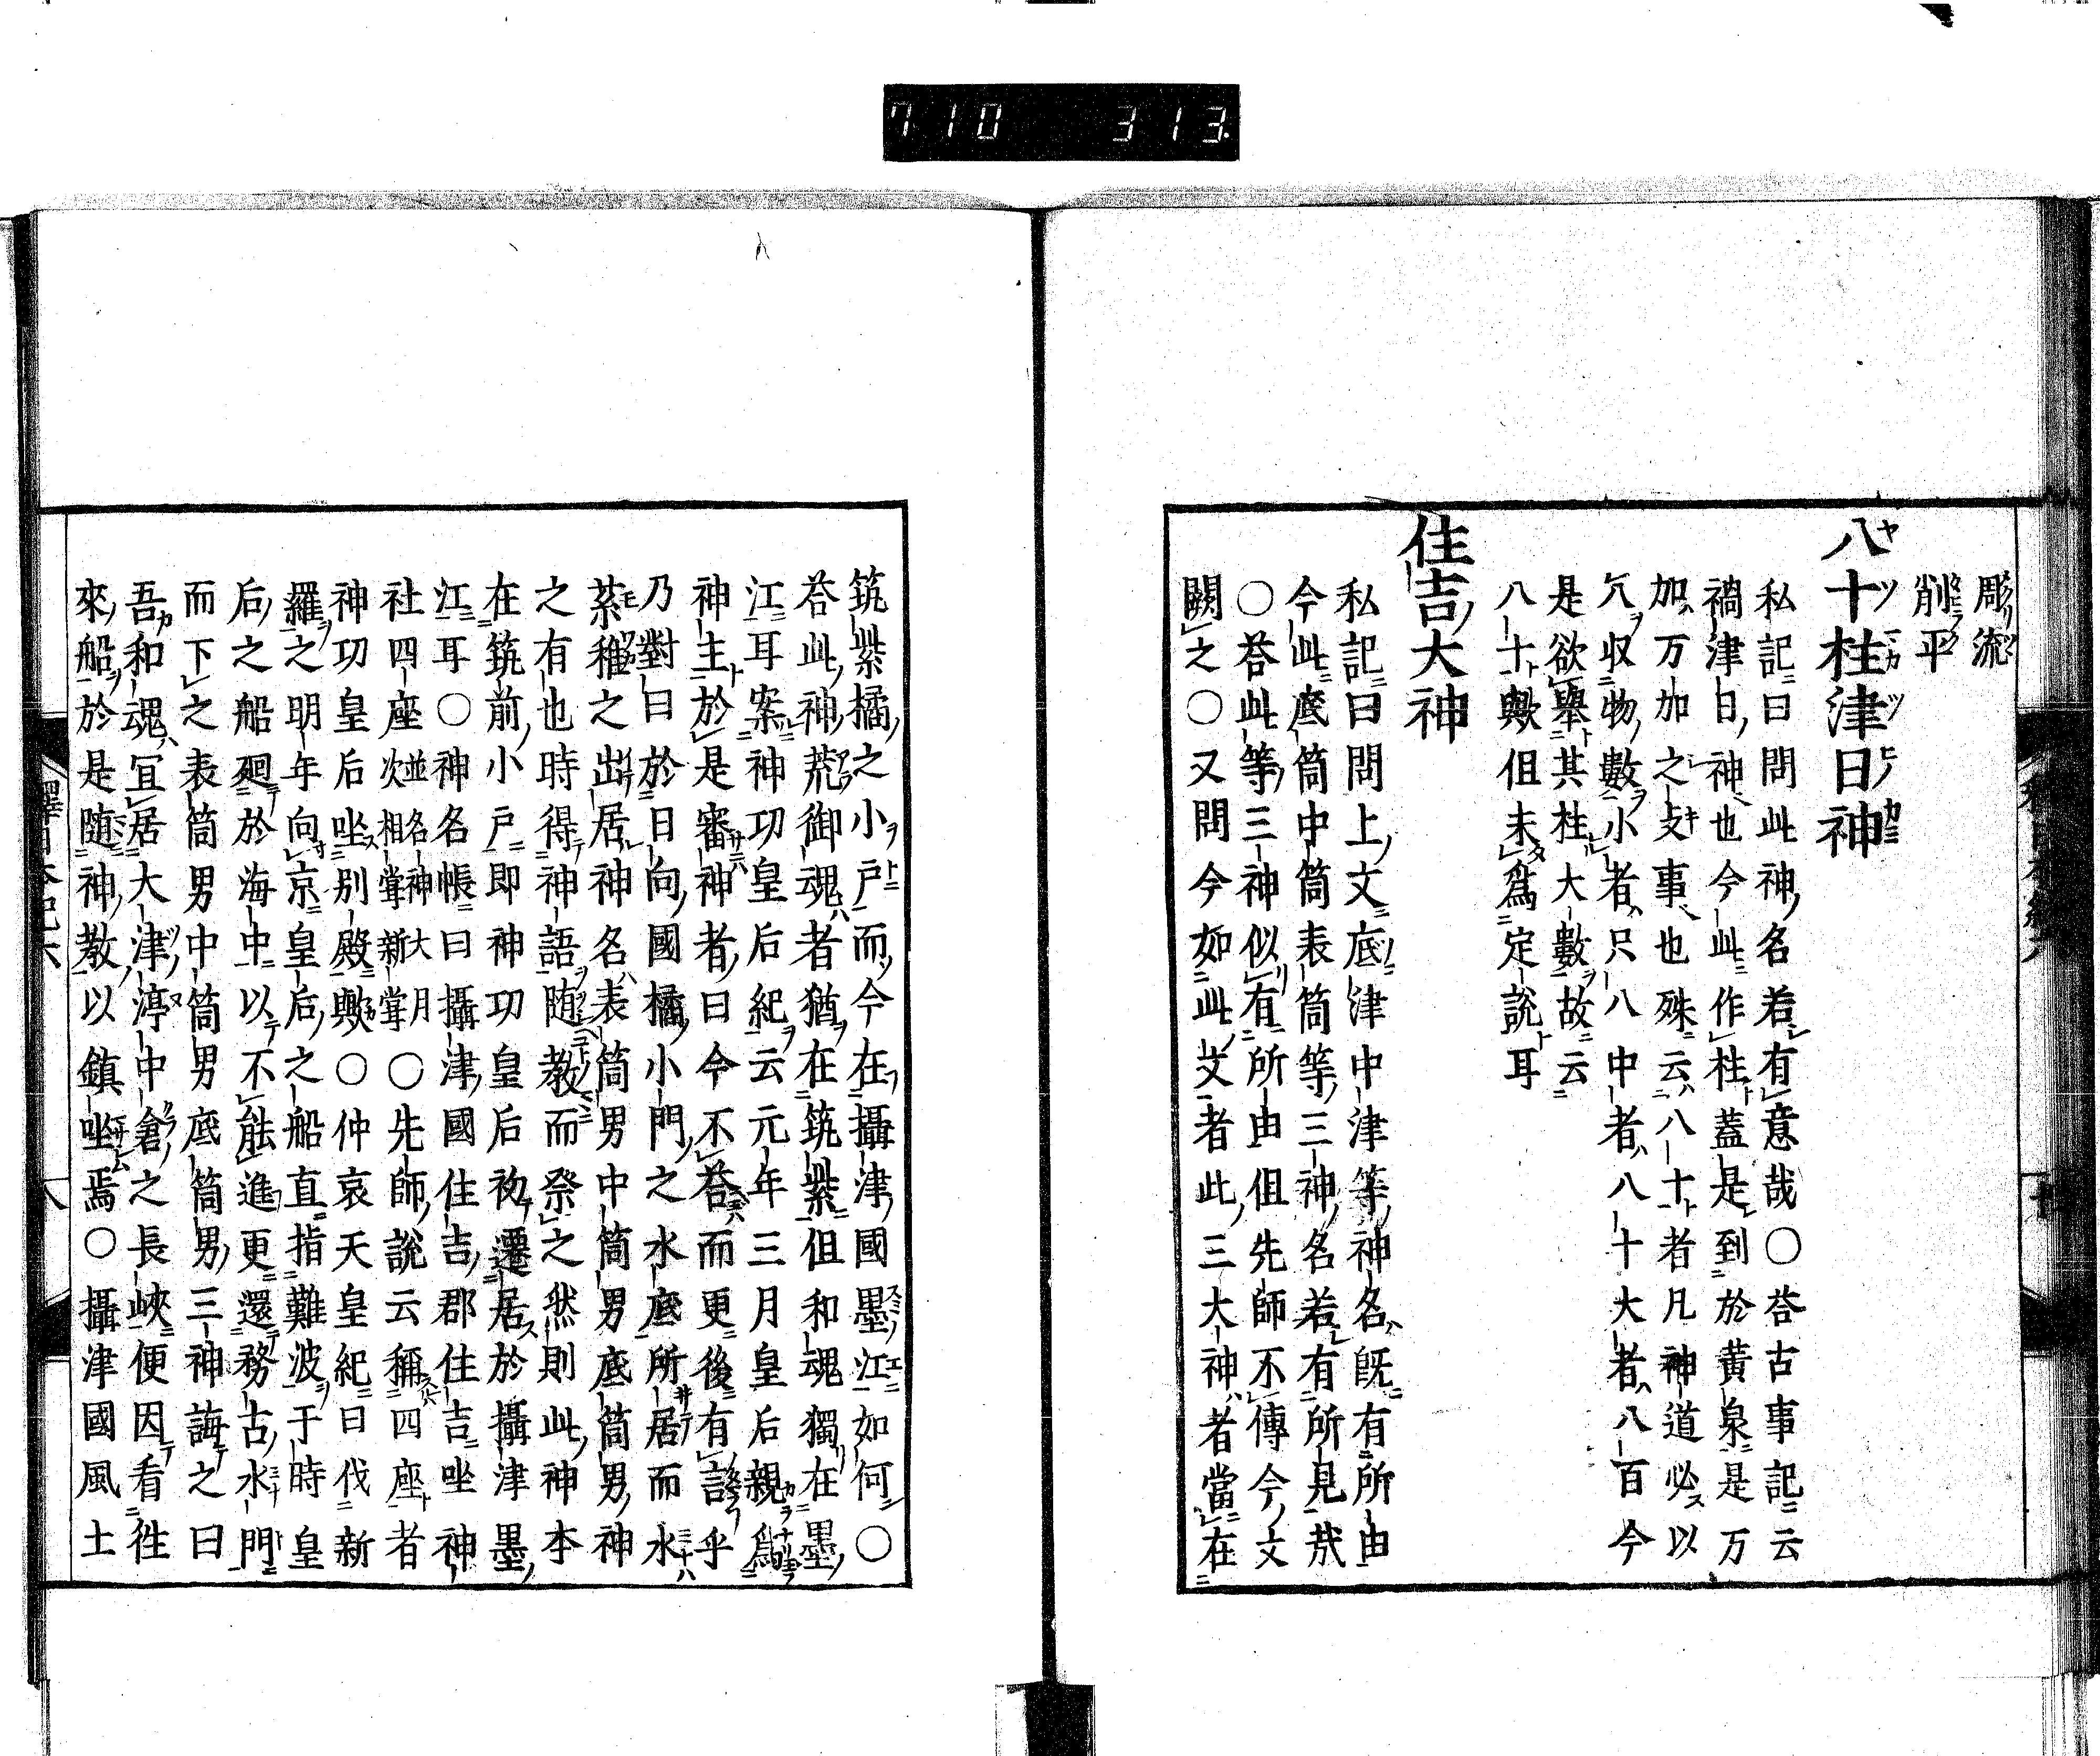 7 10 313
彫流
削平
八十柱津日神
私記曰問此神名若有意哉〇荅古事記云
禍津日神也今此作柱蓋是到於黄泉是万
加万加之支事也殊云八十者凡神道必以
収物數小者只八中者八十大者八百今
是欲舉其柱大數故云
八十歟但未爲定說耳
住吉大神
私記曰問上文底津中津等神名既有所由
今此底筒中筒表筒等三神名若有所見哉
〇荅此等三神似有所由但先師不傳今文
闕之〇又問今如此文者此三大神者當在
筑紫橘之小戸而今在攝津國墨江如何〇
荅此神荒御魂者猶在筑紫但和魂獨在墨
江耳案神功皇后紀云元年三月皇后親爲
神主於是審神者曰今不荅而更後有言乎
乃對曰於日向國橘小門之水底所居而水
葉稚之出居神名表筒男中筒男底筒男神
之有也時得神語随教而祭之然則此神本
在筑前小戸即神功皇后初遷居於攝津墨
江耳〇神名帳曰攝津國住吉郡住吉坐神
社四座並名神大月次相嘗新嘗〇先師說云稱四座者
神功皇后坐别殿歟〇仲哀天皇紀曰伐新
羅之明年向京皇后之船直指難波于時皇
后之船廻於海中以不能進更還務古水門
而下之表筒男中筒男底筒男三神誨之曰
吾和魂宜居大津渟中倉之長峽便因看徃
來船於是随神教以鎮坐焉〇攝津國風土
釋日本紀六
八